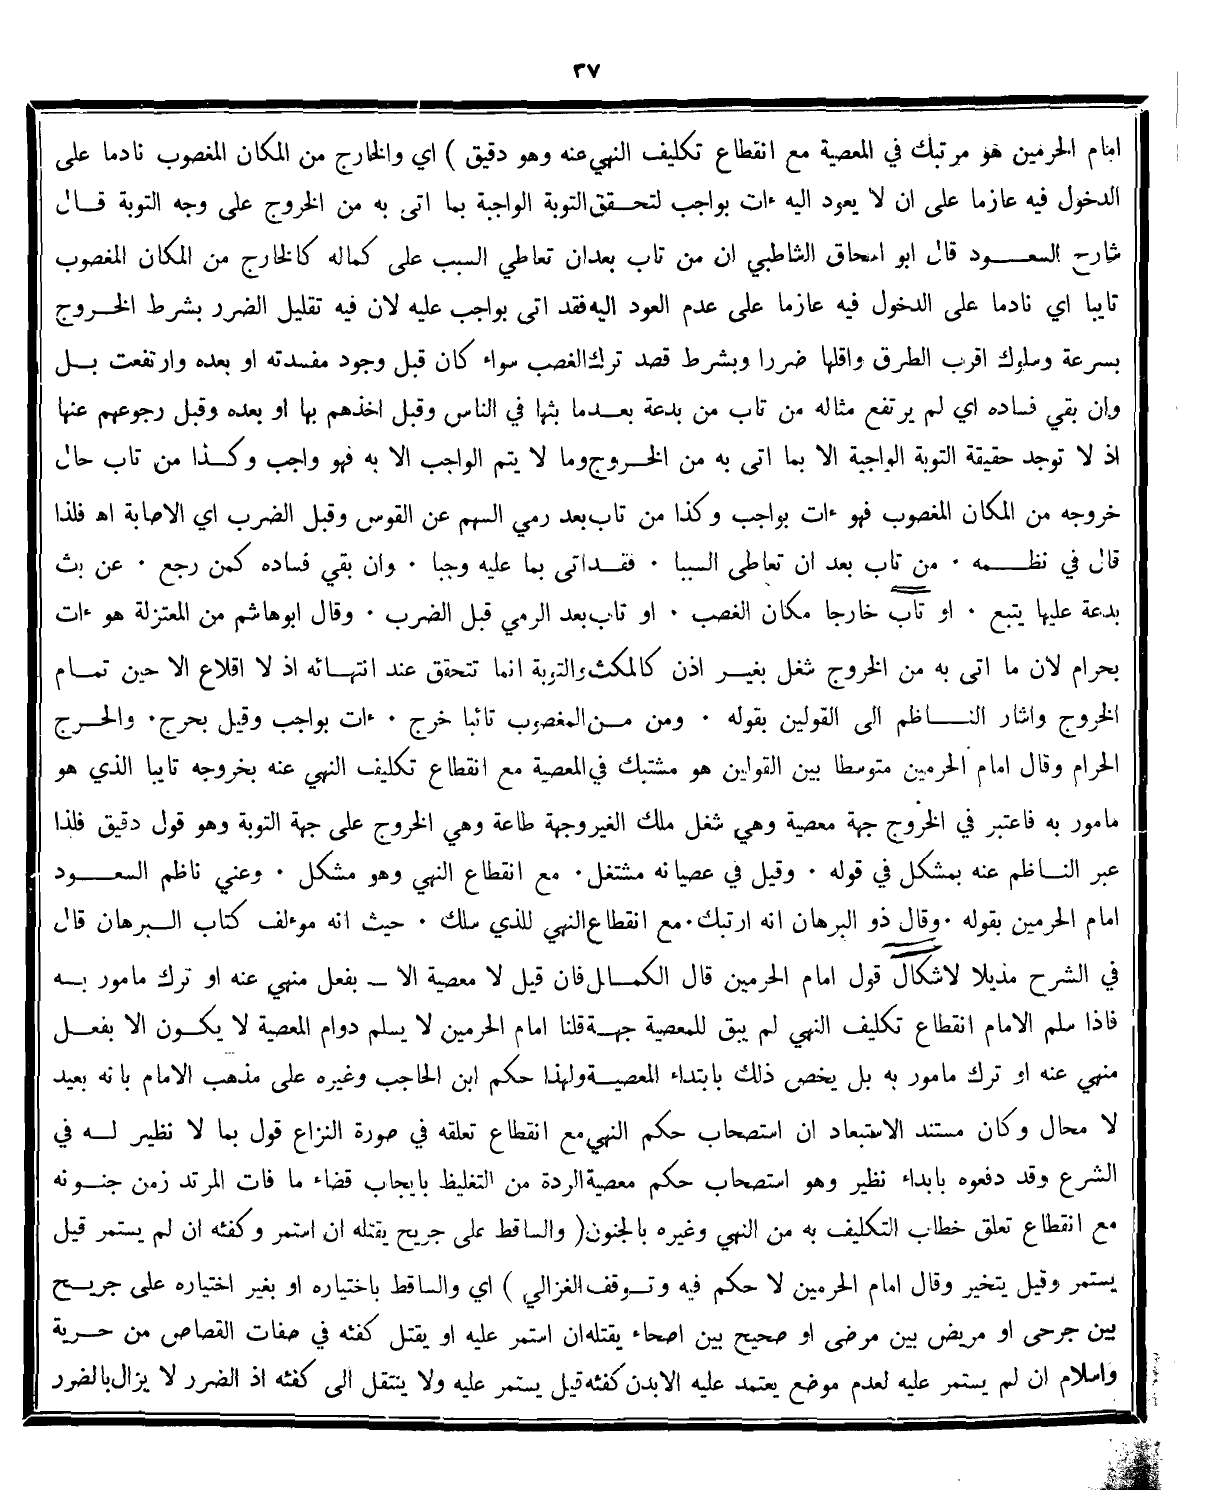 ٣٧
امام الحرمين هو مرتبك في المعصية مع انقطاع تكليف النهي عنه وهو دقيق ) اي والخارج من المكان المغصوب نادما على
الدخول فيه عازما على ان لا يعود اليه ءات بواجب لتحقق التوبة الواجبة بما اتى به من الخروج على وجه التوبة قال
شارح السعود قال ابو اسحاق الشاطبي ان من تاب بعدان تعاطي السبب على كماله كالخارج من المكان المغصوب
تايبا اي نادما على الدخول فيه عازما على عدم العود اليه فقد اتى بواجب عليه لان فيه تقليل الضرر بشرط الخروج
بسرعة وسلوك اقرب الطرق واقلها ضررا وبشرط قصد ترك الغصب سواء كان قبل وجود مفسدته او بعده وارتفعت بل
وان بقي فساده اي لم يرتفع مثاله من تاب من بدعة بعدما بثها في الناس وقبل اخذهم بها او بعده وقبل رجوعهم عنها
اذ لا توجد حقيقة التوبة الواجبة الا بما اتى به من الخروج وما لا يتم الواجب الا به فهو واجب وكذا من تاب حال
خروجه من المكان المغصوب فهو ءات بواجب وكذا من تاب بعد رمي السهم عن القوس وقبل الضرب اي الاصابة اه فلذا
قال في نظمه · من تاب بعد ان تعاطى السببا · فقداتى بما عليه وجبا · وان بقي فساده كمن رجع · عن بث
بدعة عليها يتبع · او تاب خارجا مكان الغصب · او تاب بعد الرمي قبل الضرب · وقال ابوهاشم من المعتزلة هو ءات
بحرام لان ما اتى به من الخروج شغل بغير اذن كالمكث والتوبة انما تتحقق عند انتهائه اذ لا اقلاع الا حين تمام
الخروج واشار الناظم الى القولين بقوله · ومن من المغصوب تائبا خرج · ءات بواجب وقيل بحرج · والحرج
الحرام وقال امام الحرمين متوسطا بين القولين هو مشتبك في المعصية مع انقطاع تكليف النهي عنه بخروجه تايبا الذي هو
مامور به فاعتبر في الخروج جهة معصية وهي شغل ملك الغير وجهة طاعة وهي الخروج على جهة التوبة وهو قول دقيق فلذا
عبر الناظم عنه بمشكل في قوله · وقيل في عصيانه مشتغل · مع انقطاع النهي وهو مشكل · وعني ناظم السعود
امام الحرمين بقوله · وقال ذو البرهان انه ارتبك · مع انقطاع النهي للذي سلك · حيث انه موءلف كتاب البرهان قال
في الشرح مذيلا لاشكال قول امام الحرمين قال الكمال فان قيل لا معصية الا ـ بفعل منهي عنه او ترك مامور به
فاذا سلم الامام انقطاع تكليف النهي لم يبق للمعصية جهة قلنا امام الحرمين لا يسلم دوام المعصية لا يكون الا بفعل
منهي عنه او ترك مامور به بل يخص ذلك بابتداء المعصية ولهذا حكم ابن الحاجب وغيره على مذهب الامام بانه بعيد
لا محال وكان مستند الاستبعاد ان استصحاب حكم النهي مع انقطاع تعلقه في صورة النزاع قول بما لا نظير له في
الشرع وقد دفعوه بابداء نظير وهو استصحاب حكم معصية الردة من التغليظ بايجاب قضاء ما فات المرتد زمن جنونه
مع انقطاع تعلق خطاب التكليف به من النهي وغيره بالجنون ( والساقط على جريح يقتله ان استمر وكفئه ان لم يستمر قيل
يستمر وقيل يتخير وقال امام الحرمين لا حكم فيه وتوقف الغزالي ) اي والساقط باختياره او بغير اختياره على جريح
بين جرحى او مريض بين مرضى او صحيح بين اصحاء يقتله ان استمر عليه او يقتل كفئه في صفات القصاص من حرية
واسلام ان لم يستمر عليه لعدم موضع يعتمد عليه الابدن كفئه قيل يستمر عليه ولا ينتقل الى كفئه اذ الضرر لا يزال بالضرر